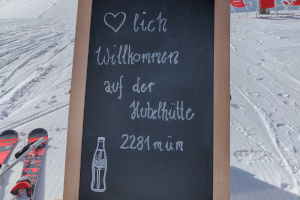 ♡lich
Willkommen
auf der
Hubelhütte
2281 müm